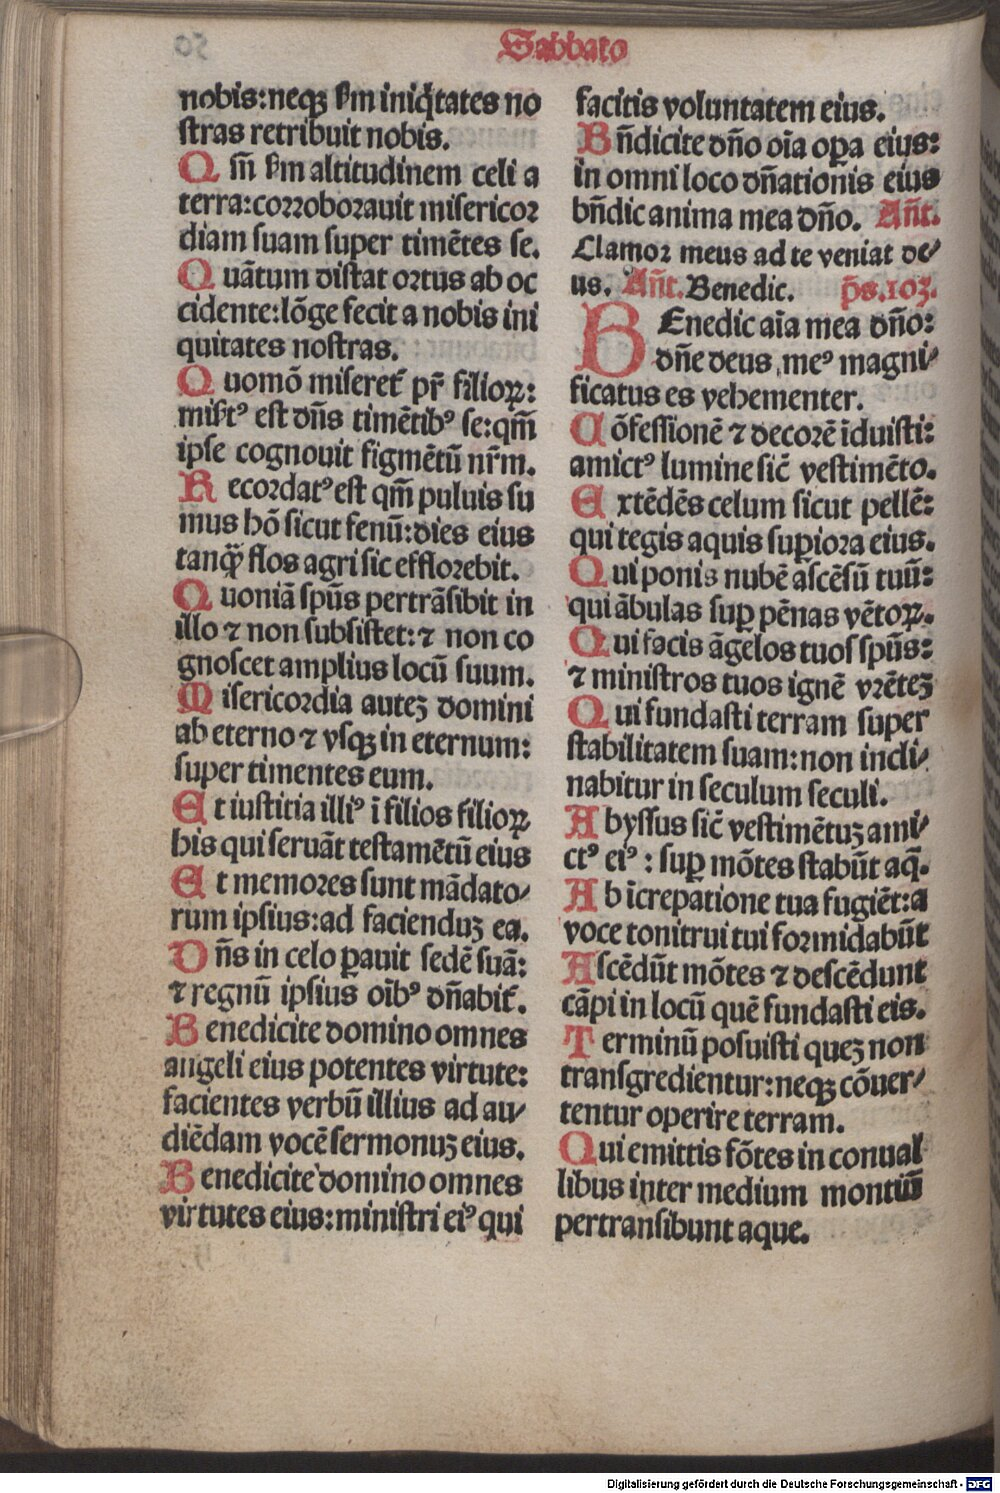 Sabbato
nobis:neqꝫ ẜm iniq̇tates no
stras retribuit nobis.
Qm̄ ẜm altitudinem celi a
terra:corroborauit misericor
diam suam super timētes se.
Quātum distat ortus ab oc
cidente:lōge fecit a nobis ini
quitates nostras.
Quomō miseret᷑ pr̄ filioꝝ:
misert᷒ est dn̄s timētib᷒ se:qm̄
ipse cognouit figmētū nr̄m.
Recordat᷒ est qm̄ puluis su
mus hō sicut fenū:dies eius
tanq̄ flos agri sic efflorebit.
Quoniā spūs pertrāsibit in
illo ⁊ non subsistet:⁊ non co
gnoscet amplius locū suum.
Misericordia auteꝫ domini
ab eterno ⁊ vsqꝫ in eternum:
super timentes eum.
Et iustitia illi᷒ ī filios filioꝝ
his qui seruāt testamētū eius
Et memores sunt mādato⸗
rum ipsius:ad facienduꝫ ea.
Dn̄s in celo ꝑauit sedē suā:
⁊ regnū ipsius oīb᷒ dn̄abit᷑.
Benedicite domino omnes
angeli eius potentes virtute:
facientes verbū illius ad au⸗
diēdam vocē sermonuꝫ eius.
Benedicite domino omnes
virtutes eius:ministri ei᷒ qui
facitis voluntatem eius.
Bn̄dicite dn̄o oīa oꝑa eius:
in omni loco dn̄ationis eius
bn̄dic anima mea dn̄o. Añt.
Clamor meus ad te veniat de⸗
us. Añt. Benedic. p̄s.103.
BEnedic aīa mea dn̄o:
dn̄e deus me᷒ magni⸗
ficatus es vehementer.
Cōfessionē ⁊ decorē īduisti:
amict᷒ lumine sic̄ vestimēto.
Extēdēs celum sicut pellē:
qui tegis aquis suꝑiora eius.
Qui ponis nubē ascēsū tuū:
qui ābulas suꝑ pēnas vētoꝝ.
Qui facis āgelos tuos spūs:
⁊ ministros tuos ignē vrēteꝫ
Qui fundasti terram super
stabilitatem suam:non incli⸗
nabitur in seculum seculi.
Abyssus sic̄ vestimētuꝫ ami⸗
ct᷒ ei᷒: suꝑ mōtes stabūt aq̄.
Ab īcrepatione tua fugiēt:a
voce tonitrui tui formidabūt
Ascēdūt mōtes ⁊ descēdunt
cāpi in locū quē fundasti eis.
Terminū posuisti queꝫ non
transgredientur:neqꝫ cōuer⸗
tentur operire terram.
Qui emittis fōtes in conual
libus inter medium montiū
pertransibunt aque.
Digitalisierung gefördert durch die Deutsche Forschungsgemeinschaft - DFG